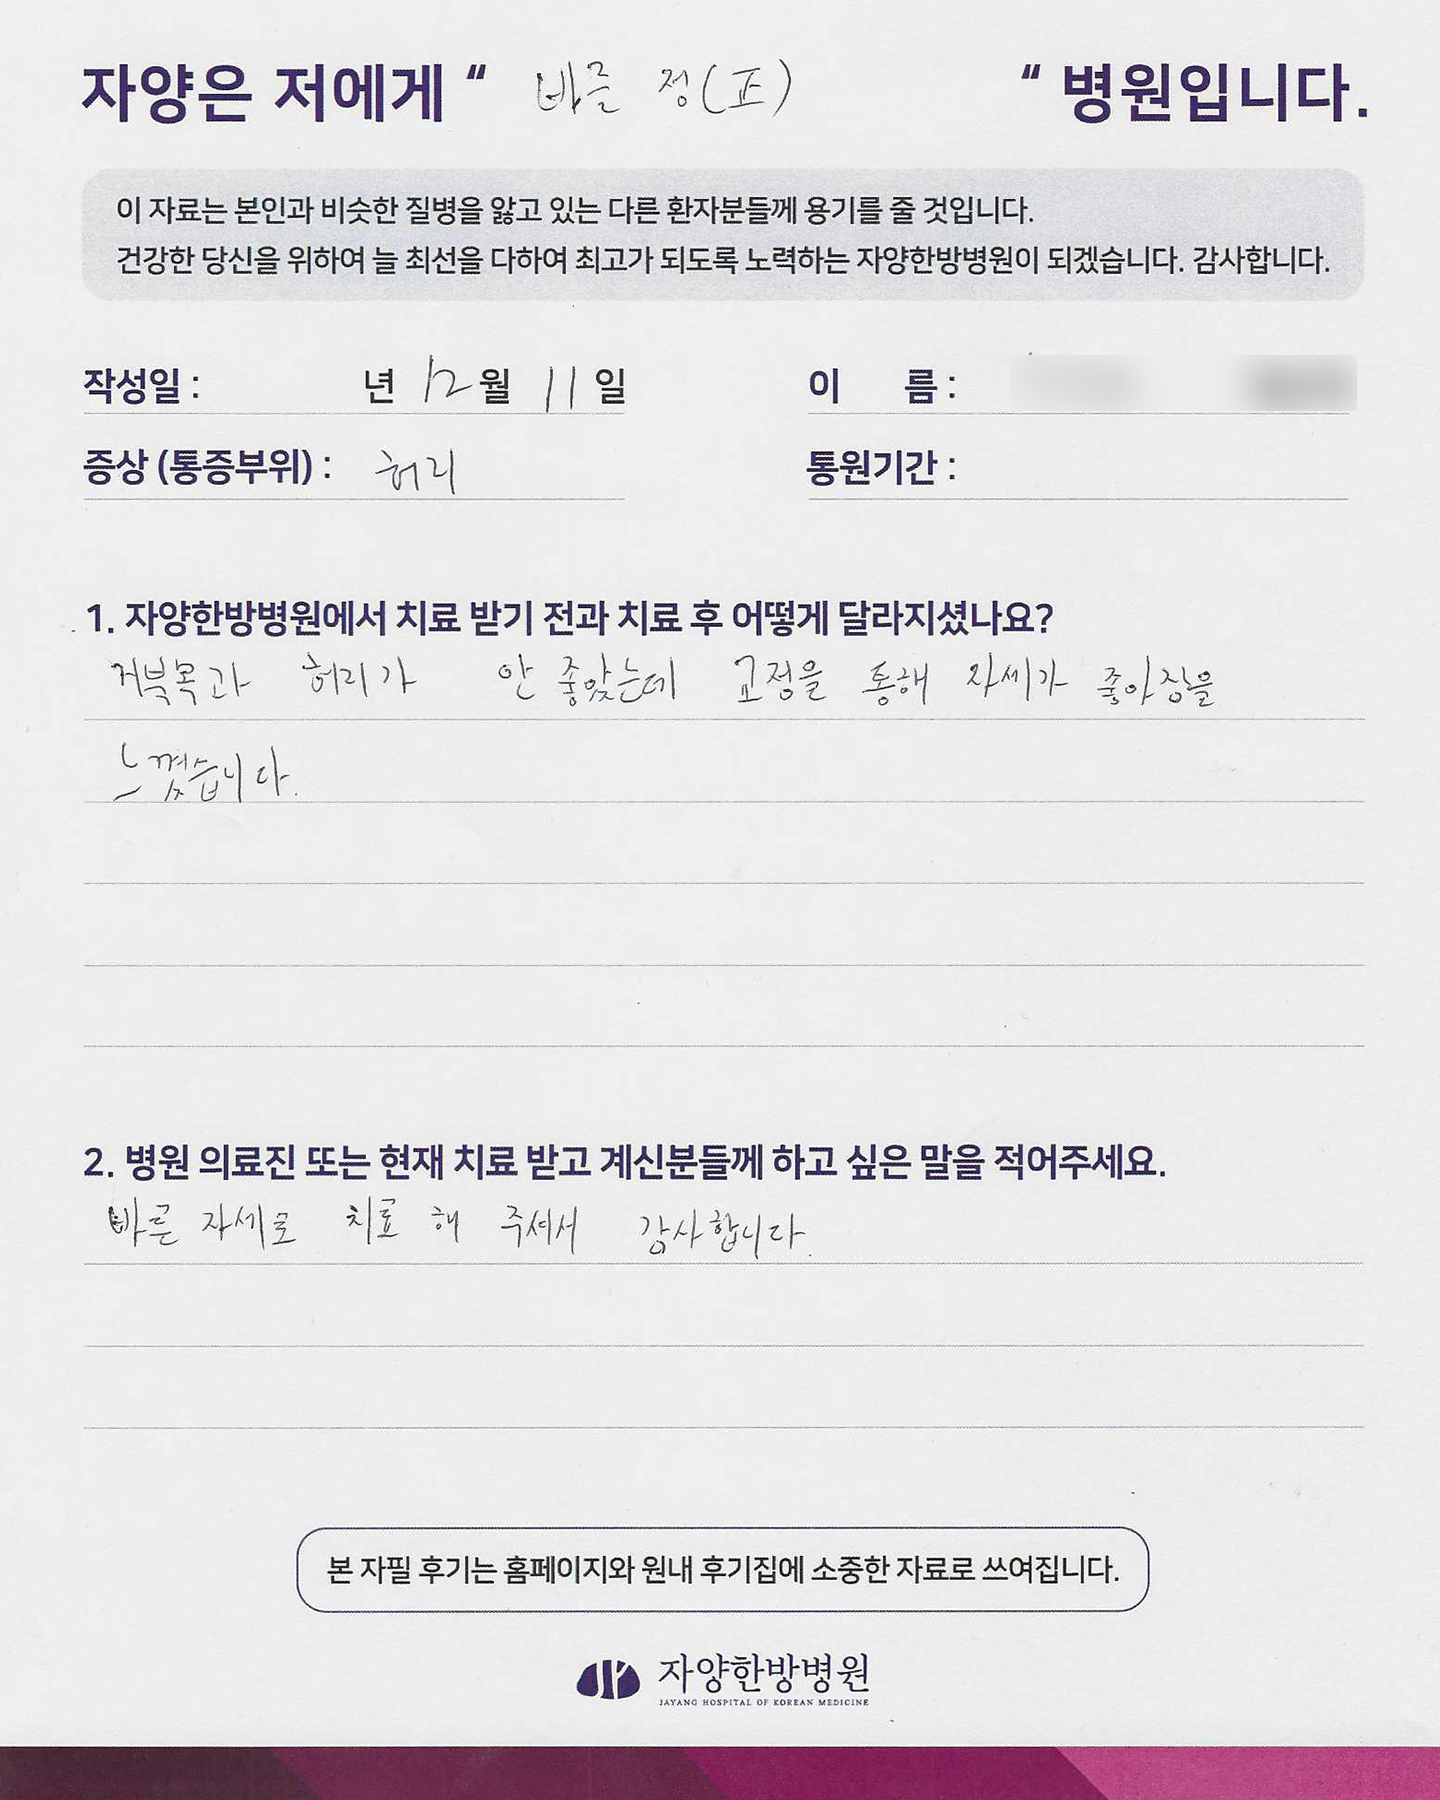 자양은 저에게 “ 바를 정(正) “ 병원입니다.
이 자료는 본인과 비슷한 질병을 앓고 있는 다른 환자분들께 용기를 줄 것입니다.
건강한 당신을 위하여 늘 최선을 다하여 최고가 되도록 노력하는 자양한방병원이 되겠습니다. 감사합니다.
작성일 : 년 12월 11일 이 름 :
증상 (통증부위) : 허리 통원기간 :
1. 자양한방병원에서 치료 받기 전과 치료 후 어떻게 달라지셨나요?
거북목과 허리가 안 좋았는데 교정을 통해 자세가 좋아짐을
느꼈습니다.
2. 병원 의료진 또는 현재 치료 받고 계신분들께 하고 싶은 말을 적어주세요.
바른 자세로 치료 해 주셔서 감사합니다.
본 자필 후기는 홈페이지와 원내 후기집에 소중한 자료로 쓰여집니다.
자양한방병원
JAYANG HOSPITAL OF KOREAN MEDICINE